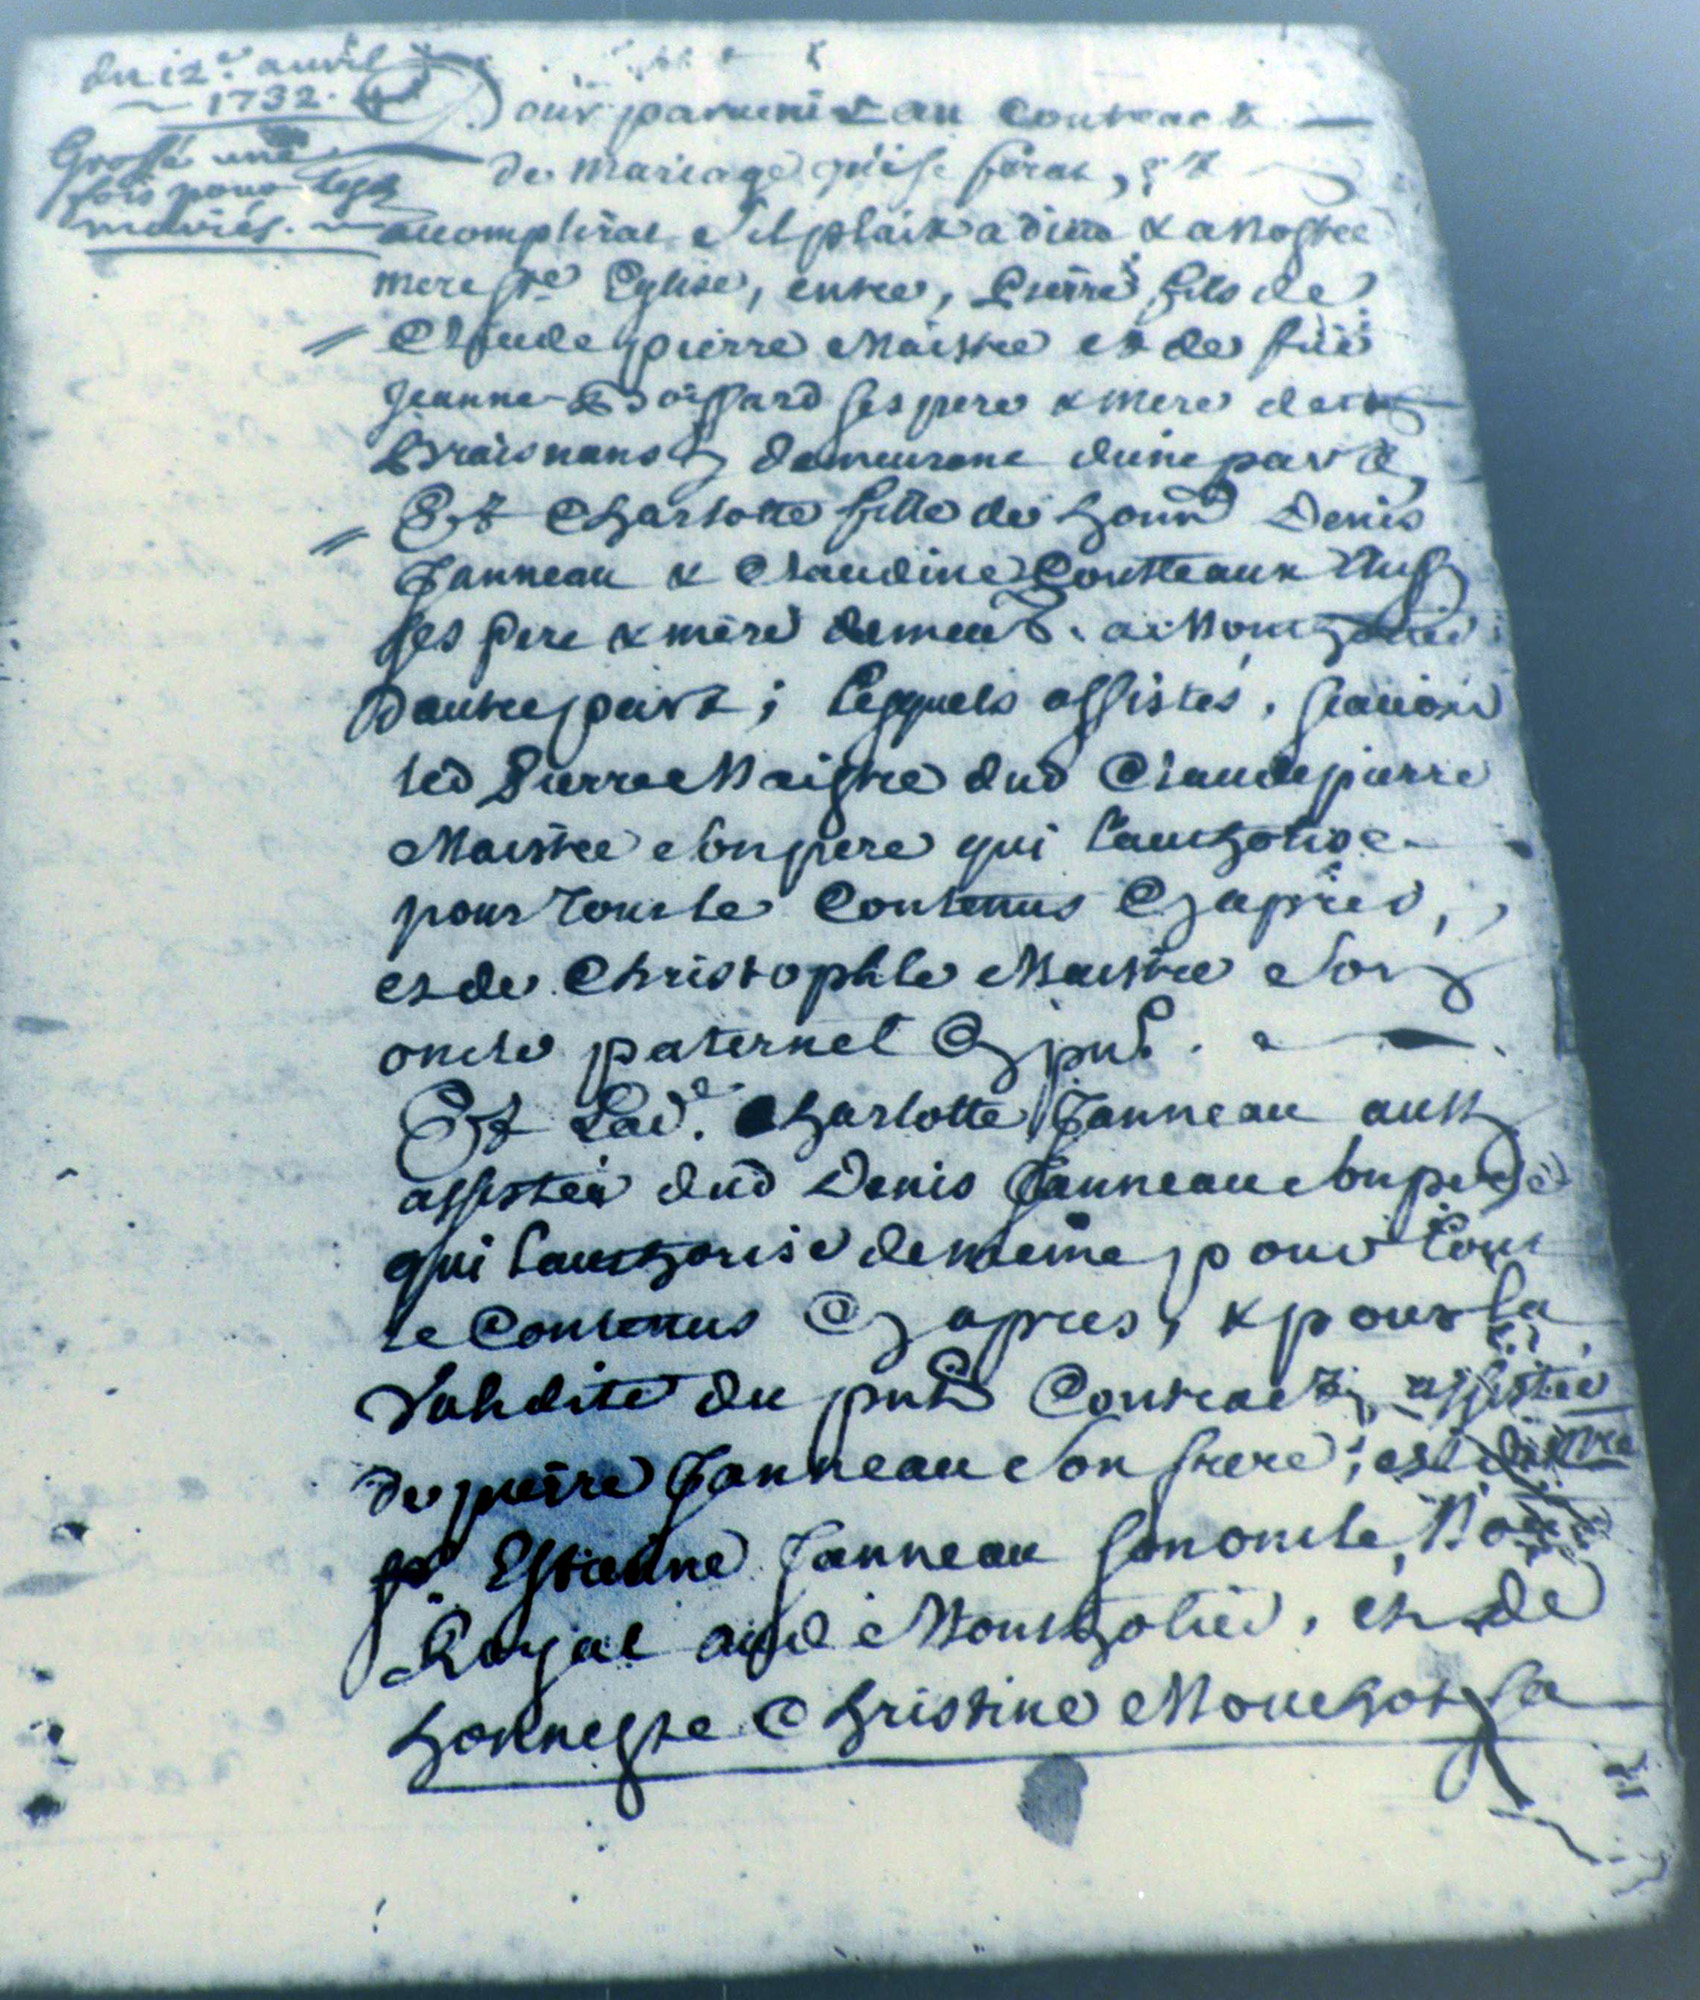 du 12.e auvril
1732.
Grossé une
fois pour les
mariés.
Pour parvenir au Contract
de Mariage qui se ferat, &
acomplirat s'il plait a dieu & a Nostre
mere ste Eglise, entre, Pierre fils de
Claude pierre Maistre et de füe
Jeanne Boissard ses pere & mere de
demeurant d'une part
Et Charlotte fille de honn Denis
Janneau & Claudine Coutteaux
ses pere & mere demeut. a Montholier
Dautre part ; lesquels assistés, scavoir
led Pierre Maistre dud Claude pierre
Maistre son pere qui l'authorise
pour tout le Contenus Cy apries,
et de Christophle Maistre son
oncle paternel Cy pnt.
Et Lad.e Charlotte Janneau aussy
assistée dud Denis Janneau son pere
qui l'authorise de meme pour tout
le Contenus Cy apres, & pour la
Validité du pnt Contract, assistée
de pierre Janneau son frere ; et
sr. Estienne Janneau son oncle,
Royal aud Montholier, et de
honneste Christine Mouchot sa